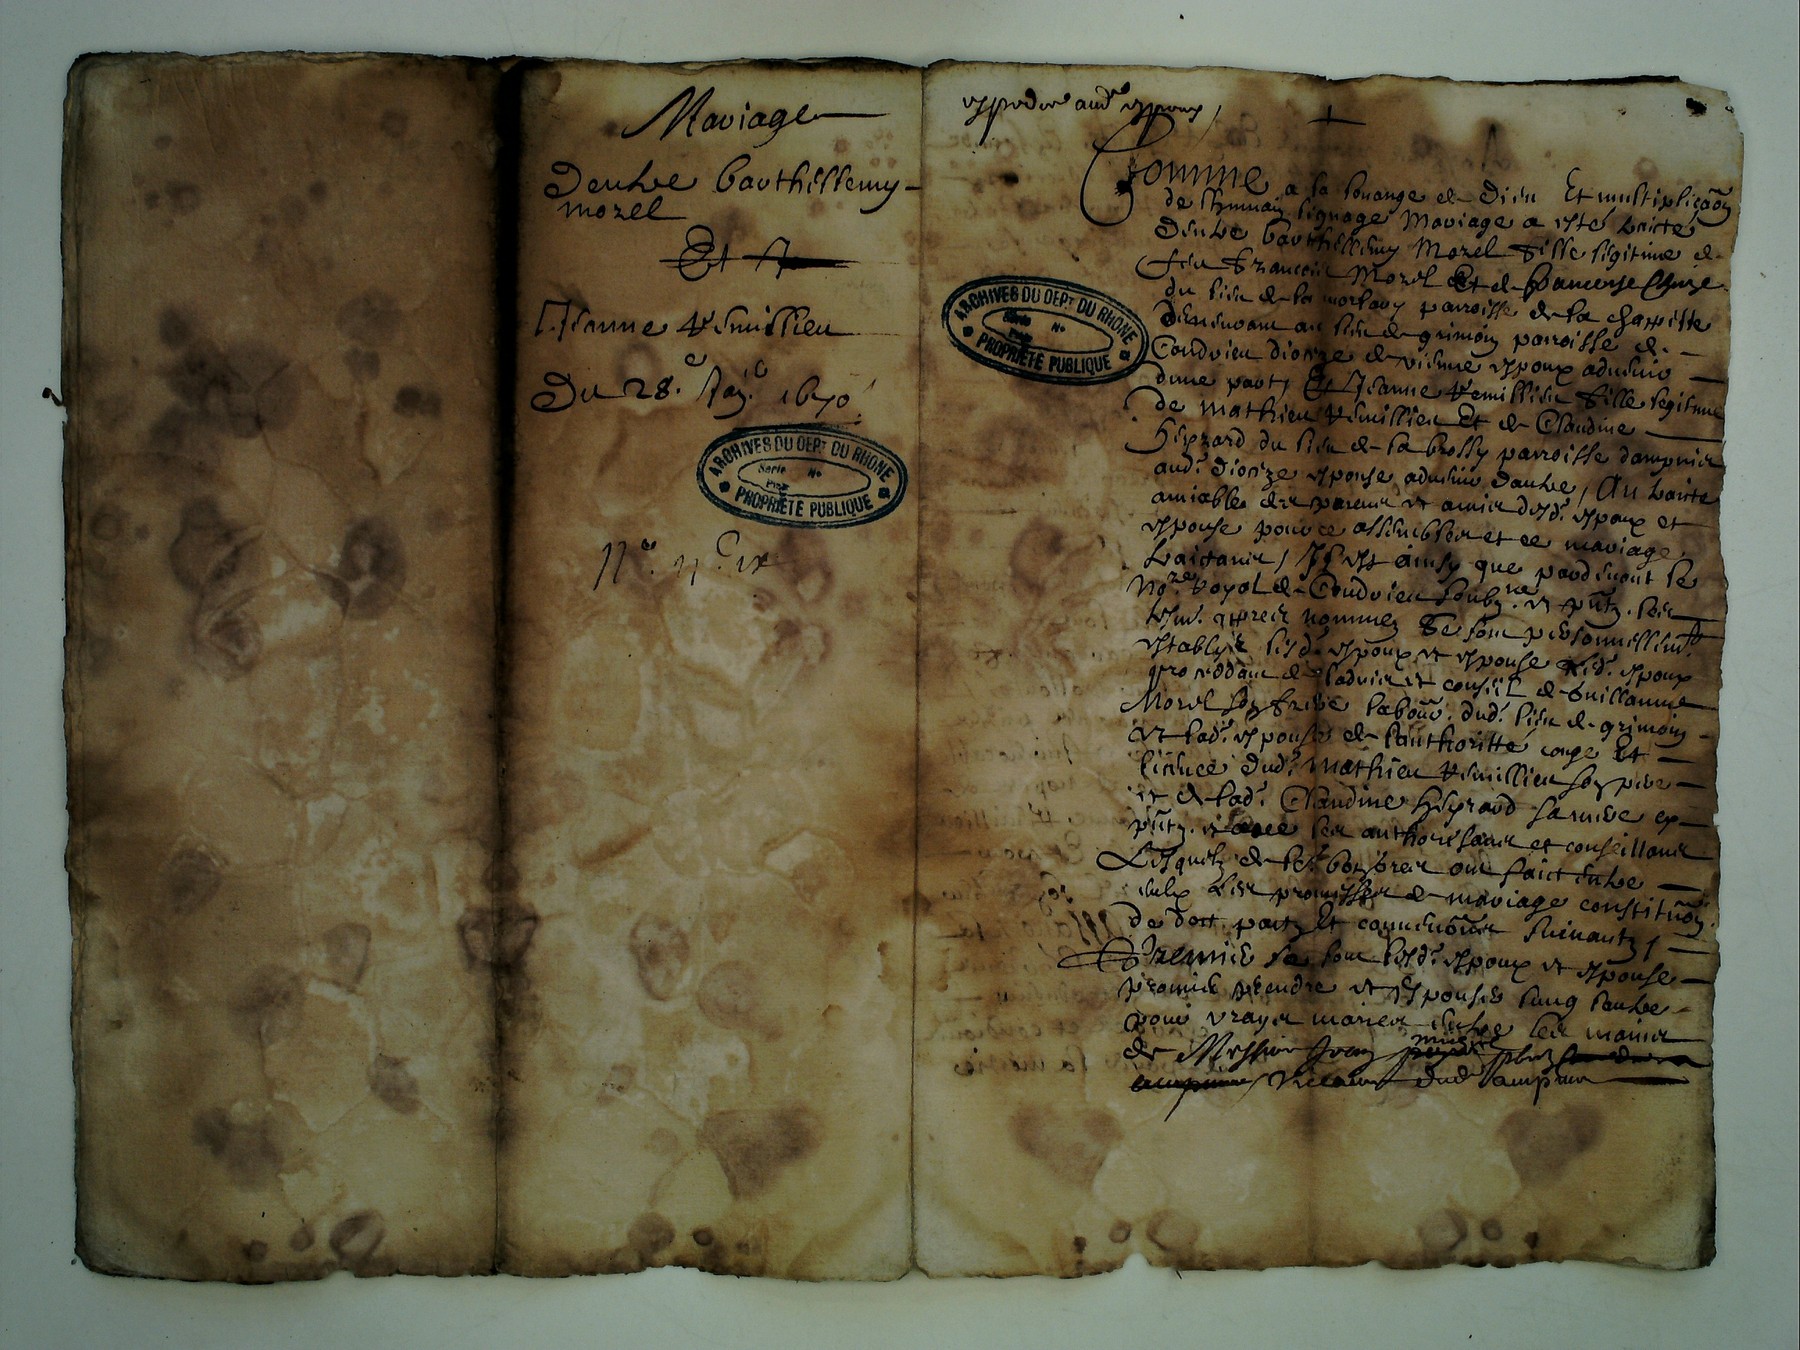 Mariage
Dentre Barthellemy
Morel
Et
Jeanne Vemillieu
Du 28.e 1670
ARCHIVES DU DEPT DU RHONE
Serie No
PROPRIÉTÉ PUBLIQUE
espoux
ARCHIVES DU DEPT DU RHONE
Serie No
PROPRIÉTÉ PUBLIQUE
Comme a la louange de Dieu Et multiplicaõn
de lhumain lignage Mariage a esté traicté
Dentre Barthellemy Morel fille legitime de
feu francois Morel Et de
du lieu de la parroisse de la chappelle
demeurant au lieu de grimoin parroisse de
Condrieu dioceze de vienne espoux advenir
dune part, Et Jeanne Vemillieu fille legitime
de Mathieu Vemillieu Et de Claudine
du lieu de la brosse parroisse dampuis
aud. dioceze espouse advenir dautre, Au traicté
amiable des parens et amis desd. espoux et
espouse pour ce assembles et ce mariage
traictans, Il est ainsy que pardevant le
No.re royal de Condrieu soubz.ne et pñtz. les
tesm. apres nommez se sont personnellem.t
establys lesd. espoux et espouse led. espoux
proceddant de ladvis et conseil de Guillaume
Morel son frere labour. dud. lieu de grimoin
et lad. espouse de lauthoritté conge Et
licence dud. Mathieu Vemillieu son pere
et de lad. Claudine sa mere
pñtz. et les authorisans et conseillans
Lesquelz de leur bon gres ont faict entre
eulx les promesses de mariage constituõn
de dott. part, Et convenõns suivantz,
Premier se sont lesd. espoux et espouse
promis prendre et espouser lung lautre
pour vrayes maries entre les mains
de Messire Jean
vicaire dud. ampuis